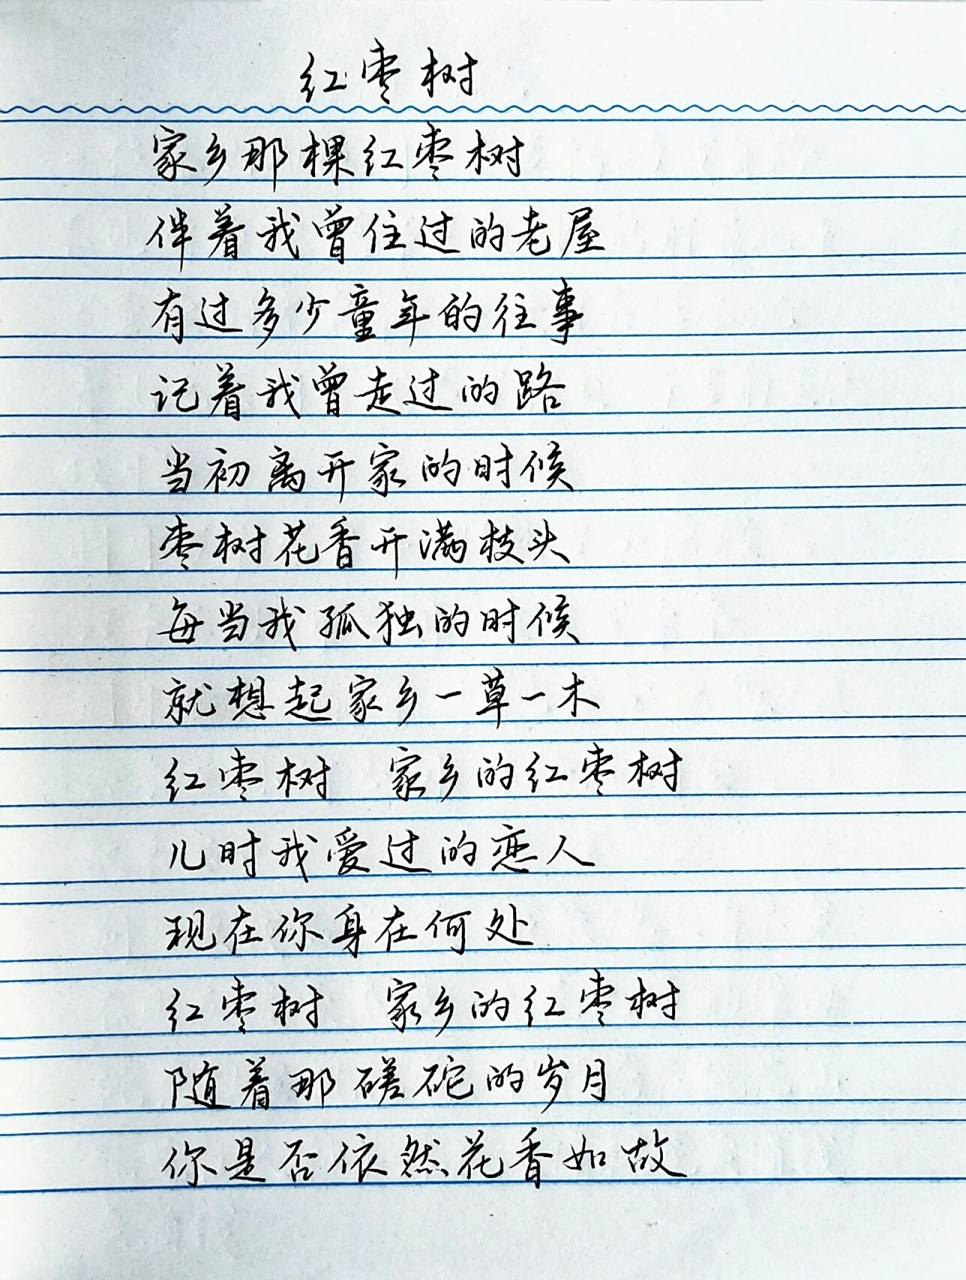 红枣树
家乡那棵红枣树
伴着我曾住过的老屋
有过多少童年的往事
记着我曾走过的路
当初离开家的时候
枣树花香开满枝头
每当我孤独的时候
就想起家乡一草一木
红枣树 家乡的红枣树
儿时我爱过的恋人
现在你身在何处
红枣树 家乡的红枣树
随着那磋砣的岁月
你是否依然花香如故